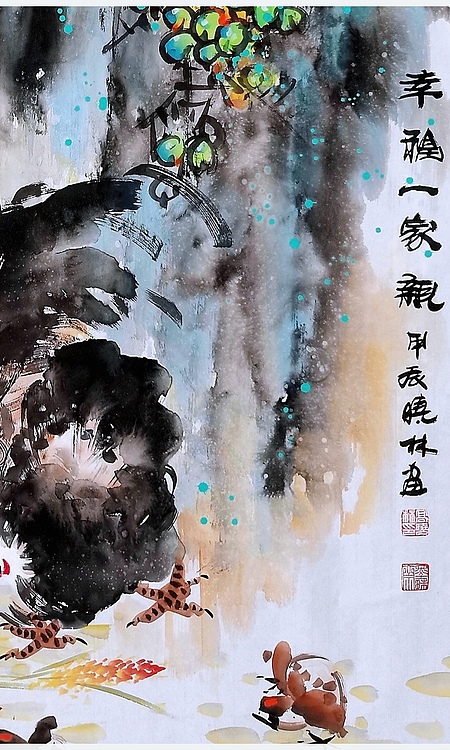 幸福一家親
甲辰曉林畫